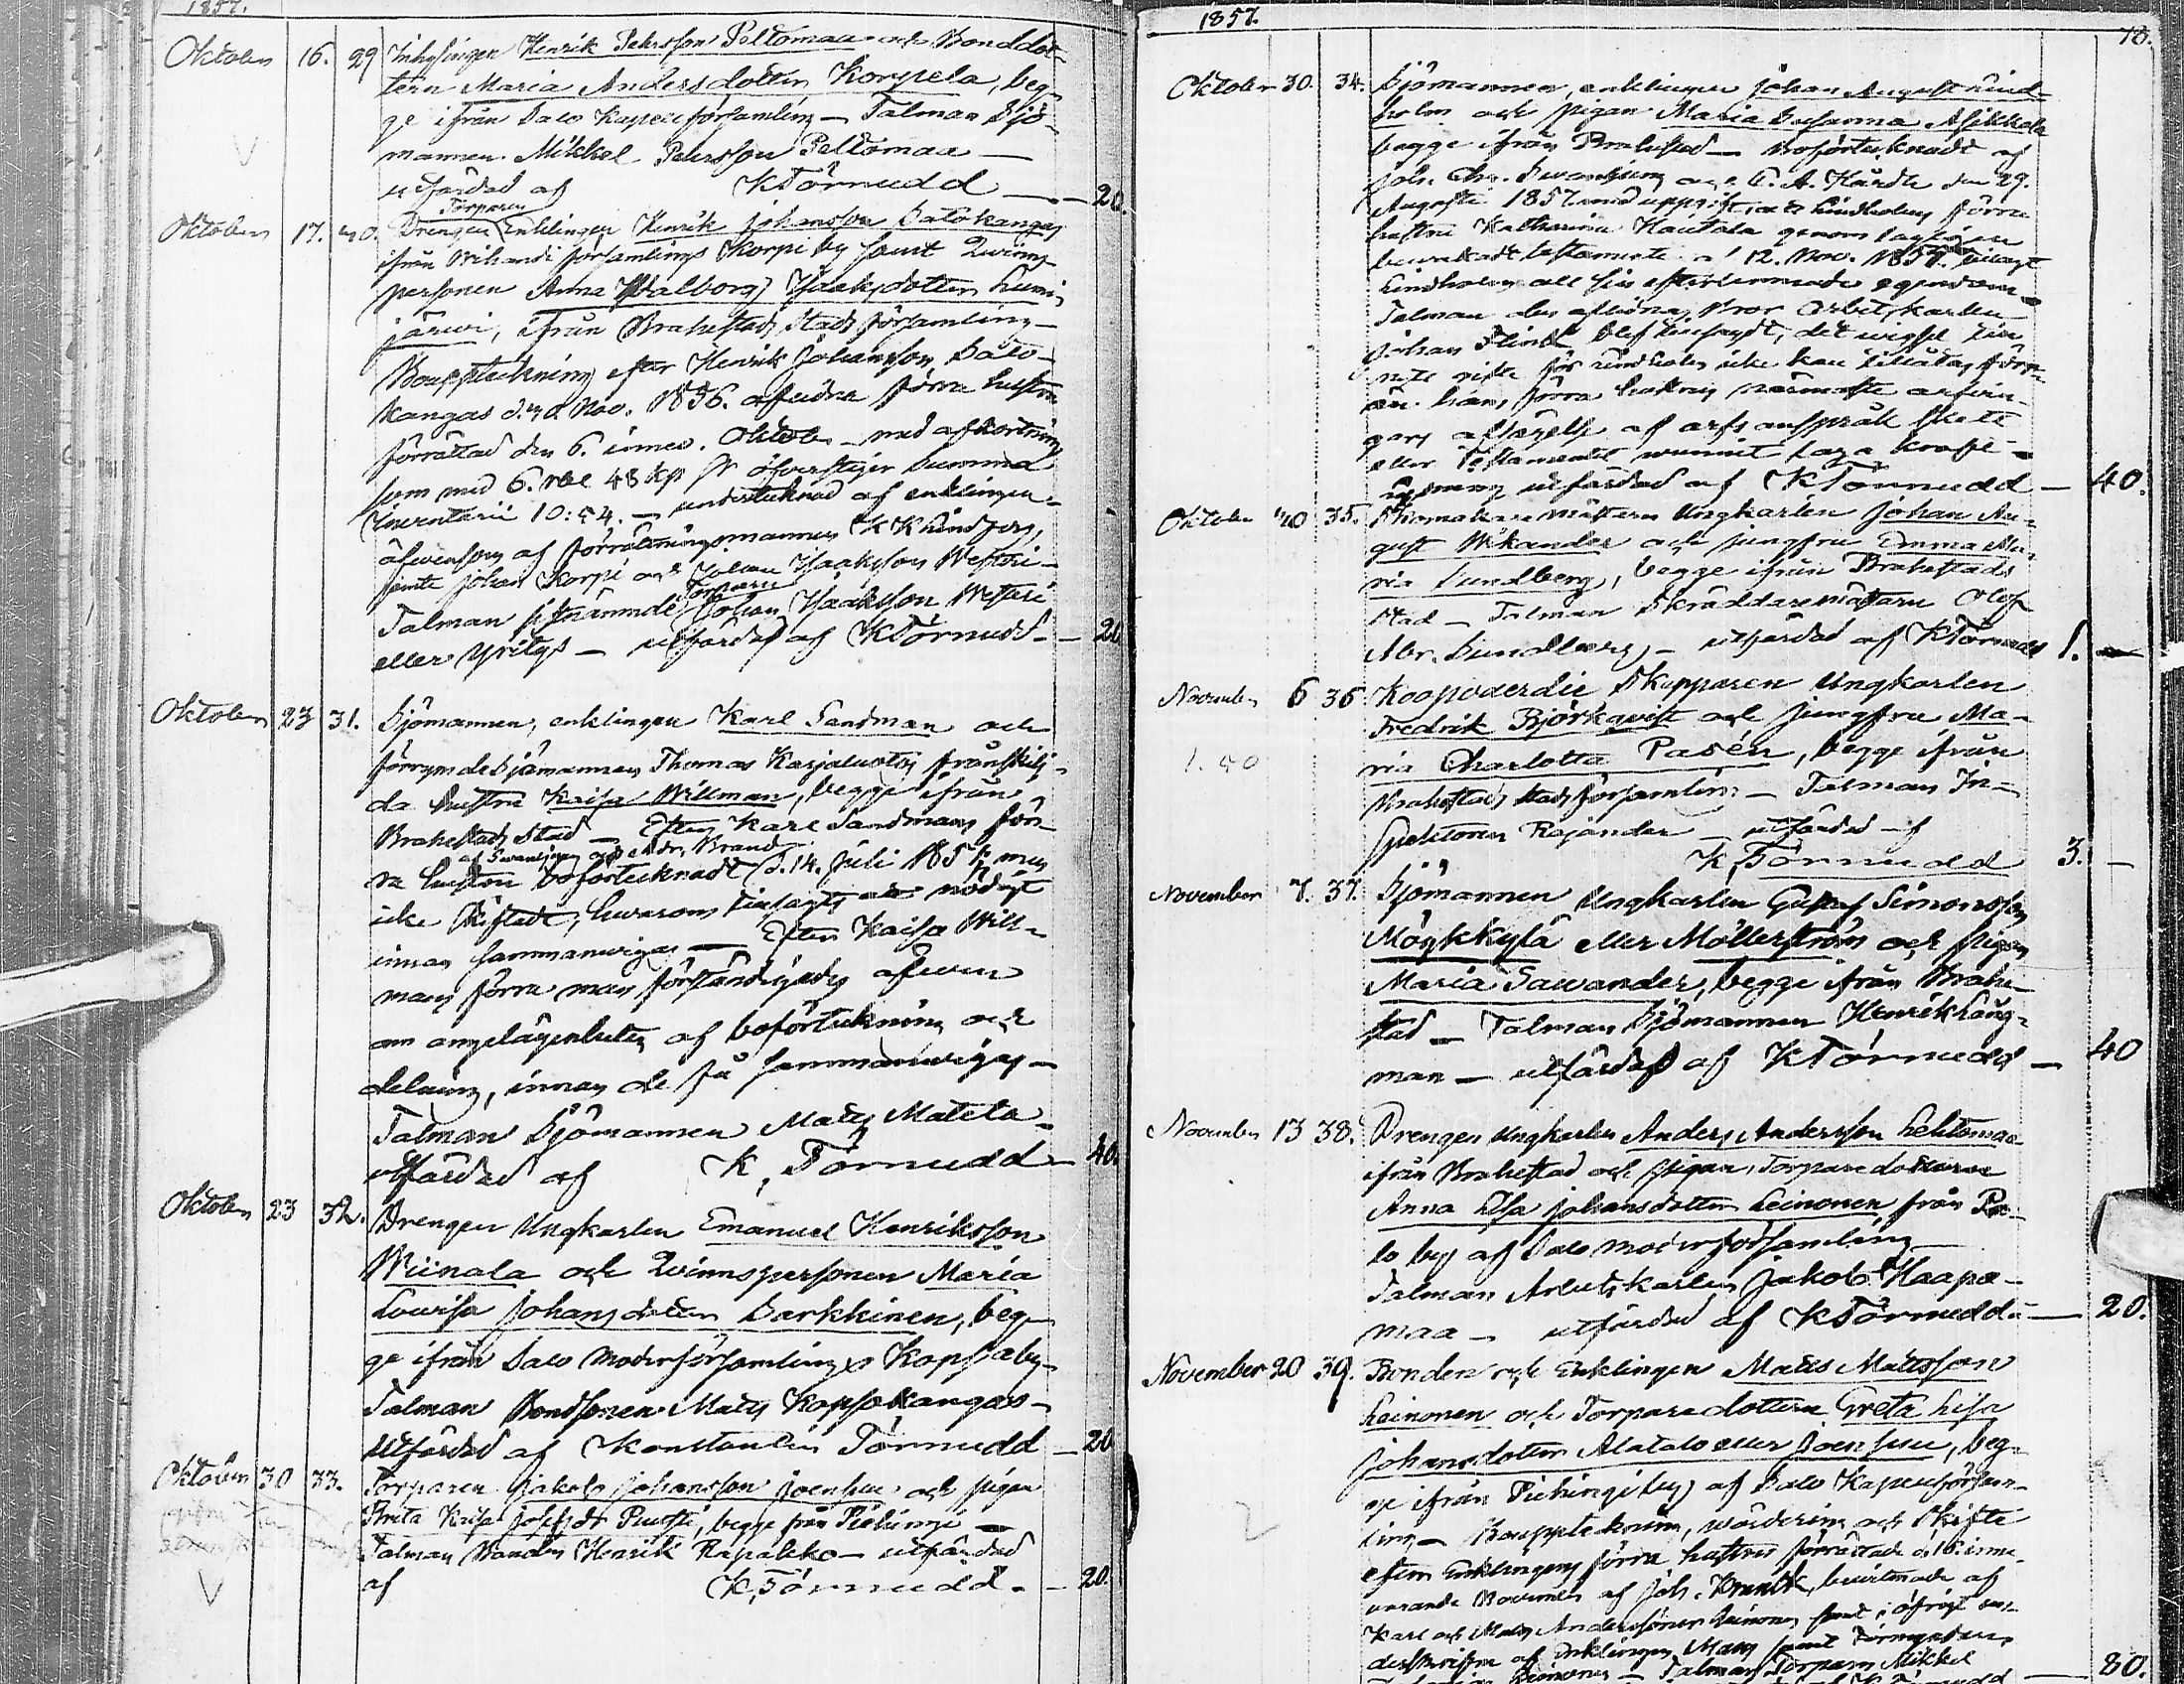 1857.
Oktober 16. 29 Inhysingen Henrik Pehrsson Peltomaa och Bonddot-
tern Maria Andersdotter Korpela, beg-
ge ifrån Salo Kapellförsamling — Talman Sjö-
mannen Mikkel Pehrsson Peltomaa —
utfärdad af KTörnudd — 20.
Torparen
Oktober 17. 30. Drengen Enklingen Henrik Johansson Salokangas
ifrån Wihandi församlings Korpi by samt Qwinns-
personen Anna Walborg Isaksdotter Lumi-
järwi, ifrån Brahestads Stads församling —
Bouppteckning efter Henrik Johansson Salo-
kangas d. 30 Nov. 1856. aflidna förra hustru
förrättad den 6. innev. Oktober — med afkortning
som med 6. rbl 48 kp Sr öfverstiger Summa
Inventarii 10:54. — undertecknad af enklingen
äfvensom af förrättningsmannen K K Lindfors,
jemte Johan Korpi och Johan Isaksson Westeri —
Torparen
Talman sistnämnde Johan Isaksson Westeri
eller Yritys — utfärdad af KTörnudd — 20
Oktober 23 31. Sjömannen, enklingen Karl Sandman och
förrymde Sjömannen Thomas Karjaluotos frånskilj-
da hustru Kaisa Willman, begge ifrån
Brahestads Stad — Efter Karl Sandmans för-
af Swanljung och Andr. Brand
ra hustru boförtecknadt d. 14. Juli 1857, men
icke skiftadt, hwarom tillsagts nödigt
innan sammanwigas — Efter Kaisa Will-
mans förra man förständigades äfwen
om angelägenheten af boförteckning och
delning, innan de få sammanwigas —
Talman Sjömannen Mats Matela —
utfärdad af K. Törnudd — 40.
Oktober 23 32. Drengen Ungkarlen Emanuel Henriksson
Wiinala och Qwinnspersonen Maria
Lowisa Johansdotter Sarkkinen, beg-
ge ifrån Salo Moderförsamlings Kopsa by —
Talman Bondsonen Mats Kopsakangas —
Utfärdad af Konstantin Törnudd — 20
Oktober 30 33. Torparen Jakob Johansson Joensuu och pigan
Brita Kaisa Josefsdr Puusti, begge från Piehingi —
Talman Bonden Henrik Rapakko — utfärdad
af K. Törnudd. — 20.
1857. 10.
Oktober 30. 34. Sjömannen, enklingen Johan August Lind-
holm och pigan Maria Susanna Asikkala
begge ifrån Brahestad — Boförtecknadt af
Joh. Chr. Swanljung och C. A. Hårdh den 29.
Augusti 1857. med uppgift att Lindholms förra
hustru Katharina Kautala genom lagligen
bewakadt testamente af 12. Nov. 1857. tillagt
Lindholm all sin efterlemnade egendom —
Talman den aflidnas bror Arbetskarlen
Johan Flink blef tillsagdt, det wigsel
för Lindholm icke kan tillåtas förr-
än hans förra hustrus närmaste arfwin-
gars afsägelse af arfs anspråk skett
eller Testamentet wunnit laga kraft —
Lysning utfärdad af KTörnudd — 40.
Oktober 30 35. Skomakaremästaren Ungkarlen Johan Au-
gust Wikander och jungfru Emma Ma-
ria Lundberg, begge ifrån Brahestads
stad — Talman Skräddaremästaren Olof
Abr. Sundberg — utfärdad af KTörnudd 1. —
November 6 36 Koopvaerdie Skepparen Ungkarlen
Fredrik Björkqvist och jungfru Ma-
1.40 ria Charlotta Pasén, begge ifrån
Brahestads stads församling — Talman In-
spektoren Rajander — utfärdad af
K. Törnudd 3. —
November 7. 37. Sjömannen Ungkarlen Gustaf Simonsson
Möykkylä eller Möllerström och pigan
Maria Sawander, begge ifrån Brahe-
stad — Talman Sjömannen Henrik Lång-
man — utfärdad af KTörnudd — 40
November 13 38. Drengen Ungkarlen Anders Andersson Lehtomaa
ifrån Brahestad och pigan, Torparedottren
Anna Lisa Johansdotter Leinonen från Pa-
lo by af Salo moderförsamling
Talman Arbetskarlen Jakob Haapa-
maa — utfärdad af KTörnudd — 20.
November 20 39. Bonden och Enklingen Matts Mattsson
Leinonen och Torparedottern Greta Lisa
Johansdotter Alatalo eller Joensuu, beg-
ge ifrån Piehingi by af Salo Kapellförsam-
ling — Bouppteckning, wärdering och skifte
efter Enklingens förra hustru förrättade d. 16. inne-
warande November af Joh. Krank, bewittnade af
Karl och Mats Anderssöner Leinonen samt i öfrigt un-
derskrifna af Enklingen Mats samt Förmyndaren
Leinonen — Talman Torparen Mikkel — 80.